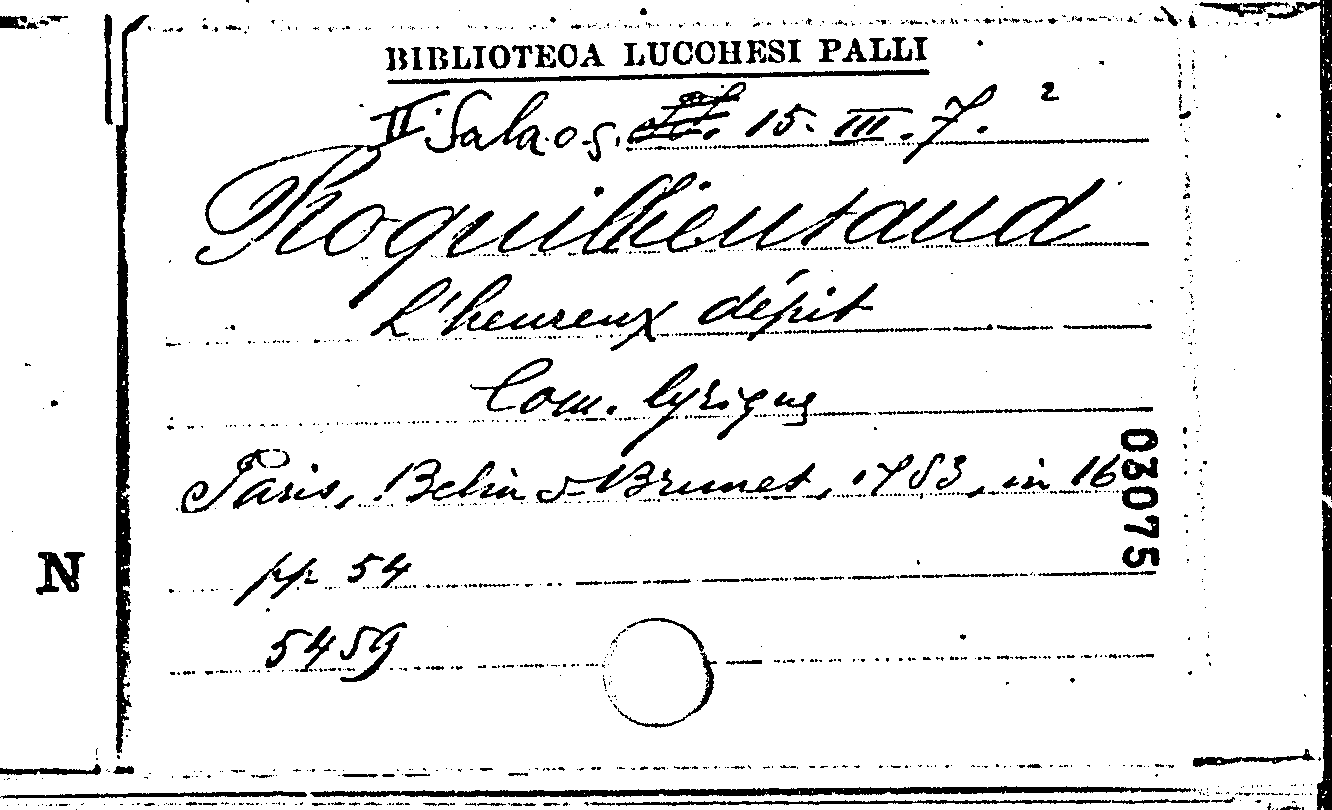 BIBLIOTECA LUCCHESI PALLI
II Sala o g. 15. III. 7. 2
Roquilhentaud
L'heureux dépit
Com. lyrique
Paris, Belin & Brunet, 1783, in 16
pp 54
5459
03075
N